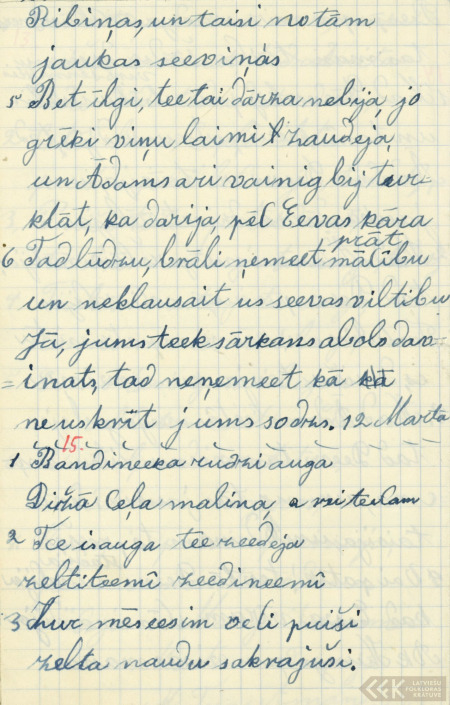 Ribiņas, un taisi no tām
jaukas seeviņas
5 Bet ilgi, tee tai dārza nebija, jo
grēki viņu laimi zaudeja,
un Ādams ari vainig bij tur=
klāt, ka darija, pēl Eevas kāra
prāt
6 Tad lūdzu, brāli ņemeet mālību
un neklausait us seevas viltibu
Jā, jums teek sārkans abols dav=
=inats, tad neņemeet kā kā
ne uskrīt jums sodzs. 12 Marta
15.
1 Bandineeka rudzi auga
Dižā Ceļa malina,
2 Tee isauga tee zeedeja
zeltiteemi zeedineemi
3 Kur mēs eesim veli puiši
zelta naudu sakrajuši.
LATVIEŠU
FOLKLORAS
KRĀTUVE